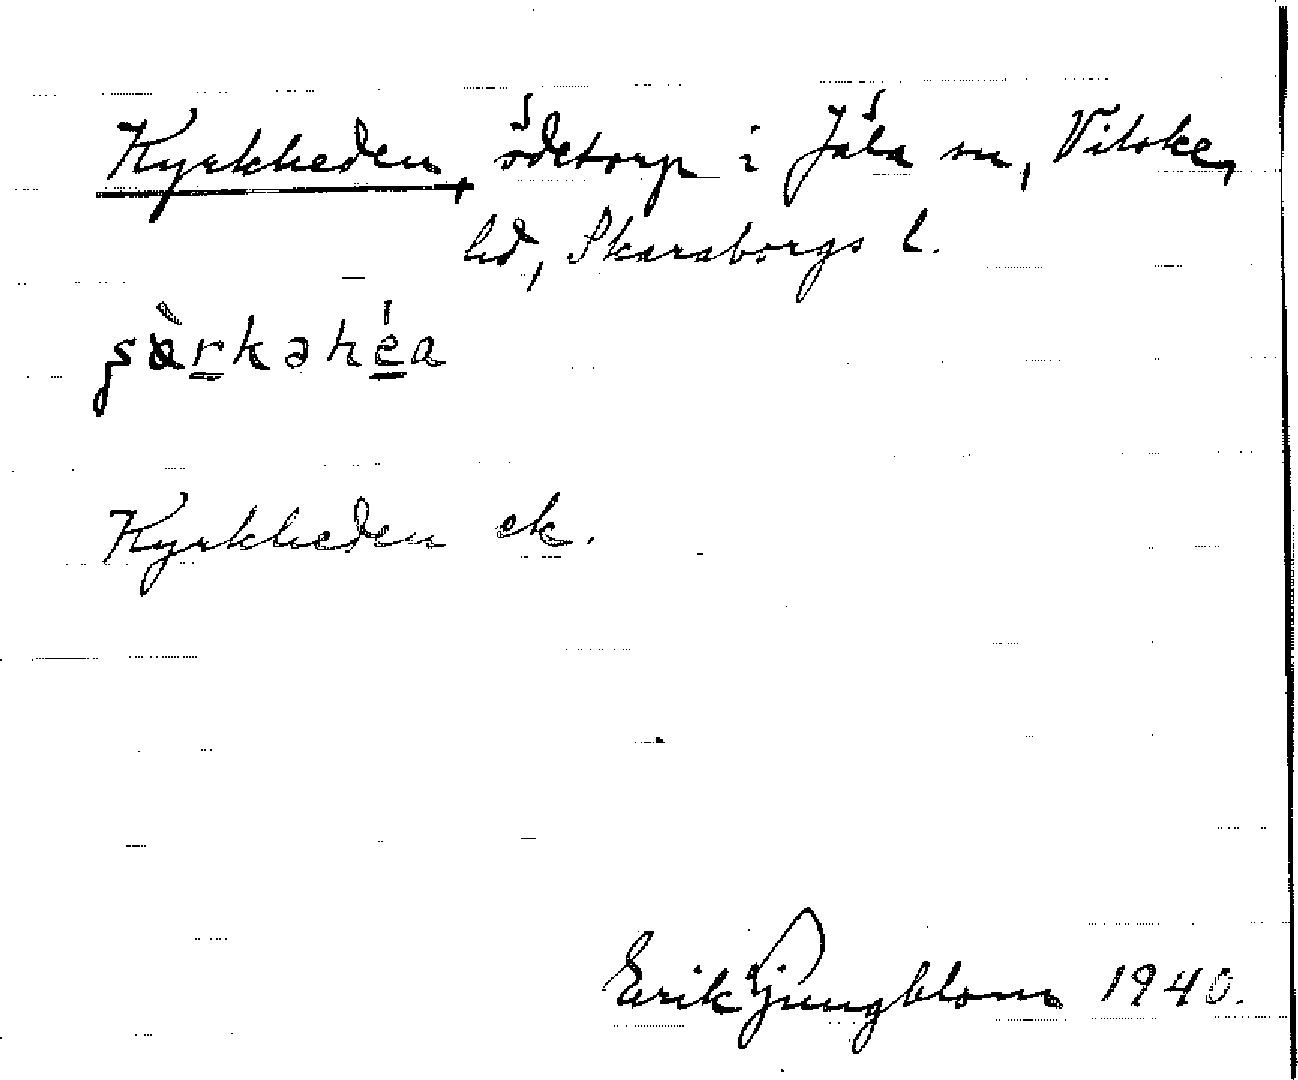 Kyrkheden, ödetorp i Jäla sn, Vilske,
hd, Skaraborgs l.
Kyrkheden ek.
Erik Ljungblom 1940.